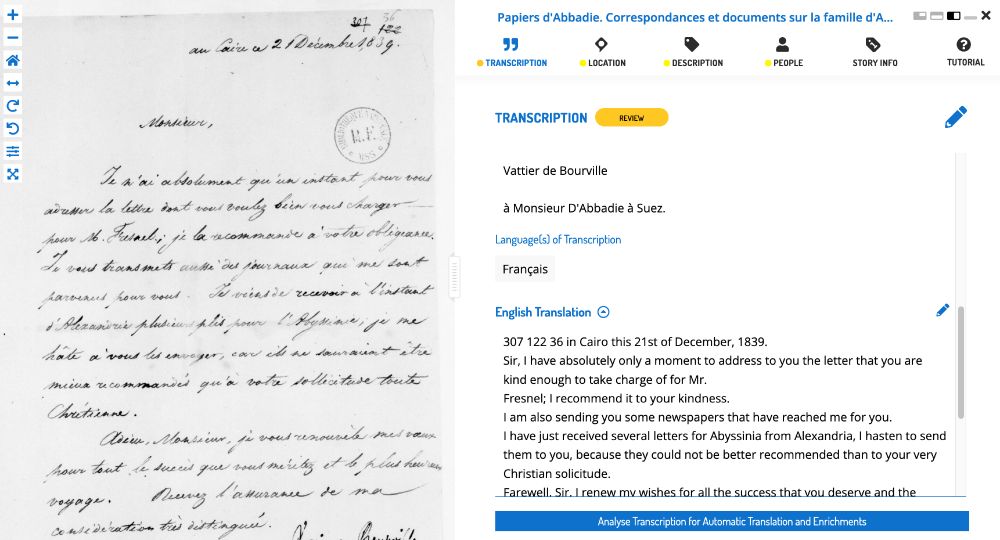 307 36
122
au Caire ce 21 Décembre 1839.
Monsieur,
BIBLIOTHEQUE
R.F.
MSS
Je n'ai absolument qu'un instant pour vous
adresser la lettre dont vous voulez bien vous charger
pour M. Fresnel; je la recommande à votre obligeance.
Je vous transmets aussi des journaux qui me sont
parvenus pour vous. Je viens de recevoir à l'instant
d'Alexandrie plusieurs plis pour l'Abyssinie; je me
hâte à vous les envoyer, car ils ne sauraient être
mieux recommandés qu'à votre sollicitude toute
Chrétienne.
Adieu, Monsieur, je vous renouvèle mes vœux
pour tout le succès que vous méritez et le plus heureux
voyage. Recevez l'assurance de ma
considération très distinguée.
Papiers d'Abbadie. Correspondances et documents sur la famille d'A...
TRANSCRIPTION
LOCATION
DESCRIPTION
PEOPLE
STORY INFO
TUTORIAL
TRANSCRIPTION REVIEW
Vattier de Bourville
à Monsieur D'Abbadie à Suez.
Language(s) of Transcription
Français
English Translation
307 122 36 in Cairo this 21st of December, 1839.
Sir, I have absolutely only a moment to address to you the letter that you are
kind enough to take charge of for Mr.
Fresnel; I recommend it to your kindness.
I am also sending you some newspapers that have reached me for you.
I have just received several letters for Abyssinia from Alexandria, I hasten to send
them to you, because they could not be better recommended than to your very
Christian solicitude.
Farewell, Sir, I renew my wishes for all the success that you deserve and the
Analyse Transcription for Automatic Translation and Enrichments